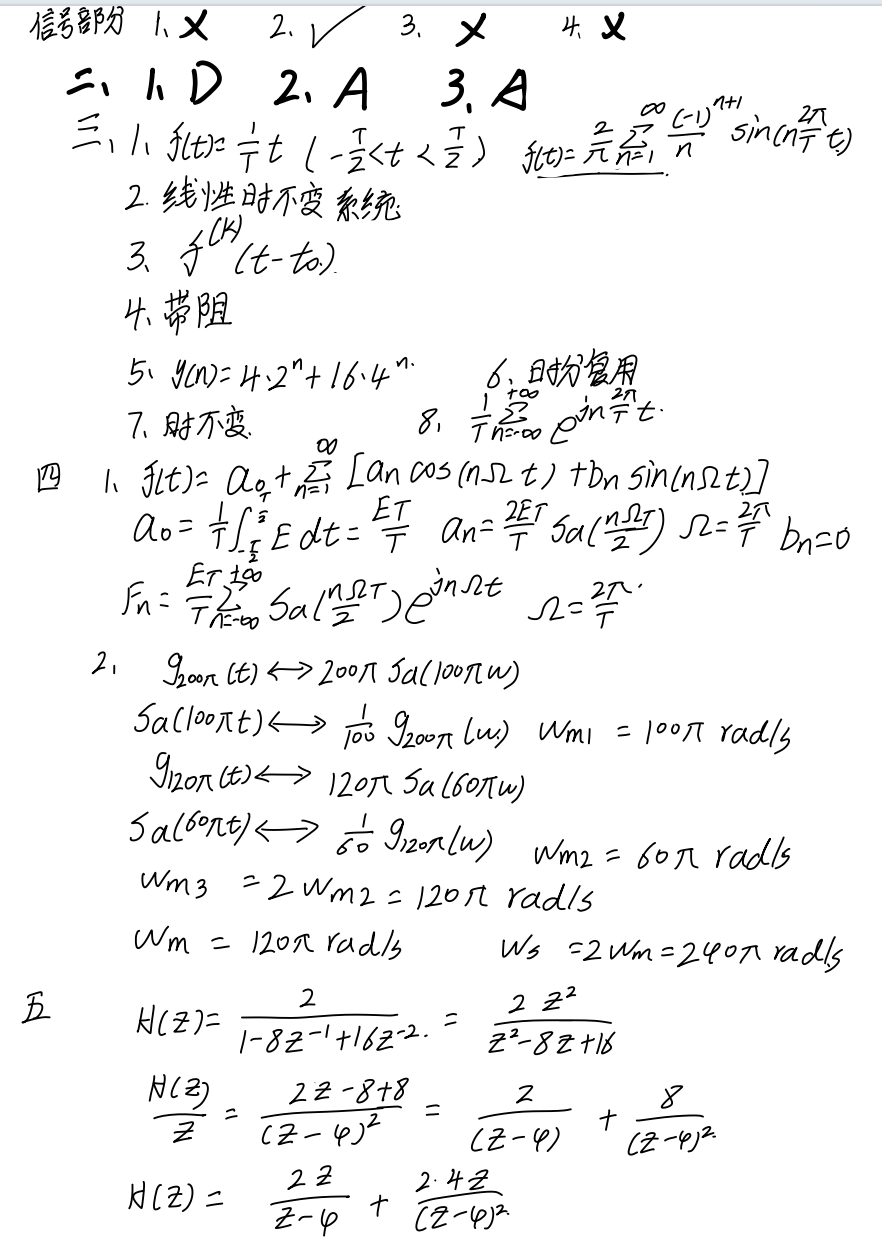 信号部分 1、× 2、✓ 3、× 4、×
二、1、D 2、A 3、A
三、1、f(t)= 1/T t (-T/2<t<T/2) f(t)= 2/π ∑_{n=1}^{∞} (-1)^{n+1}/n sin(n 2π/T t)
2. 线性时不变系统
3、f^{(k)}(t-t₀).
4、带阻
5、y(n)=4·2ⁿ+16·4ⁿ. 6、时分复用
7、时不变. 8、1/T ∑_{n=-∞}^{+∞} e^{jn 2π/T t}.
四 1、f(t)= a₀+∑_{n=1}^{∞} [aₙcos(nΩt)+bₙsin(nΩt)]
a₀= 1/T ∫_{-τ/2}^{τ/2} E dt= Eτ/T aₙ= 2Eτ/T Sa(nΩτ/2) Ω= 2π/T bₙ=0
Fₙ= Eτ/T ∑_{n=-∞}^{+∞} Sa(nΩτ/2)e^{jnΩt} Ω= 2π/T.
2、g_{200π}(t)↔200π Sa(100πw)
Sa(100πt)↔ 1/100 g_{200π}(w) wm1 = 100π rad/s
g_{120π}(t)↔ 120π Sa(60πw)
Sa(60πt)↔ 1/60 g_{120π}(w) wm2 = 60π rad/s
wm3 = 2wm2 = 120π rad/s
wm = 120π rad/s ws =2wm=240π rad/s
五 H(z)= 2/(1-8z⁻¹+16z⁻²). = 2z²/(z²-8z+16)
H(z)/z = (2z-8+8)/(z-4)² = 2/(z-4) + 8/(z-4)².
H(z)= 2z/(z-4) + 2·4z/(z-4)².